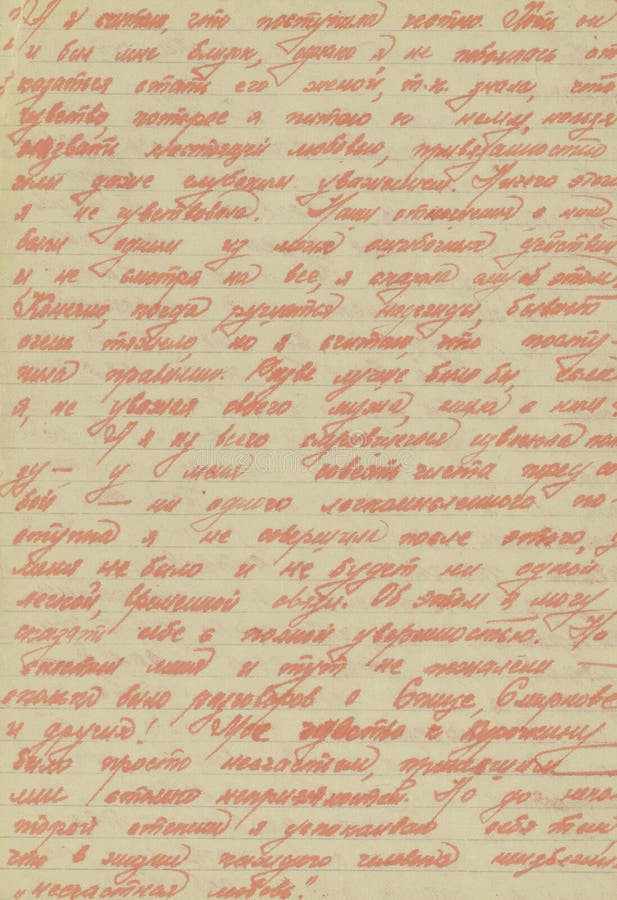 И я считаю, что поступила честно. Хоть он
и был мне близок, однако я не побоялась от
казаться стать его женой, т.к. знала, что
чувство, которое я питаю к нему, нельзя
назвать настоящей любовью, привязанностью
или даже глубоким уважением. Ничего этого
я не чувствовала. Наши отношения с ним
были одним из моих ошибочных действий
и не смотря на все, я сказала ему об этом.
Конечно, когда рушатся надежды, бывает
очень тяжело, но я считаю, что посту-
пила правильно. Разве лучше было бы, если
я, не уважая своего мужа, жила с ним.
И я из всего случившегося извлекла поль
зу — у меня совесть чиста пред со
бой — ни одного легкомысленного по-
ступка я не совершила после этого, у
меня не было и не будет ни одной
легкой, временной связи. Об этом я могу
сказать себе с полной уверенностью. Но
сплетни меня и тут не пожалели —
сколько было разговоров о Смирнове
и других! Мое чувство к Курочкину
было просто несчастьем, принесшим
мне столько неприятностей. Но до неко-
торой степени я успокаиваю себя тем,
что в жизни каждого человека неизбежна
„несчастная любовь."
dreamstime